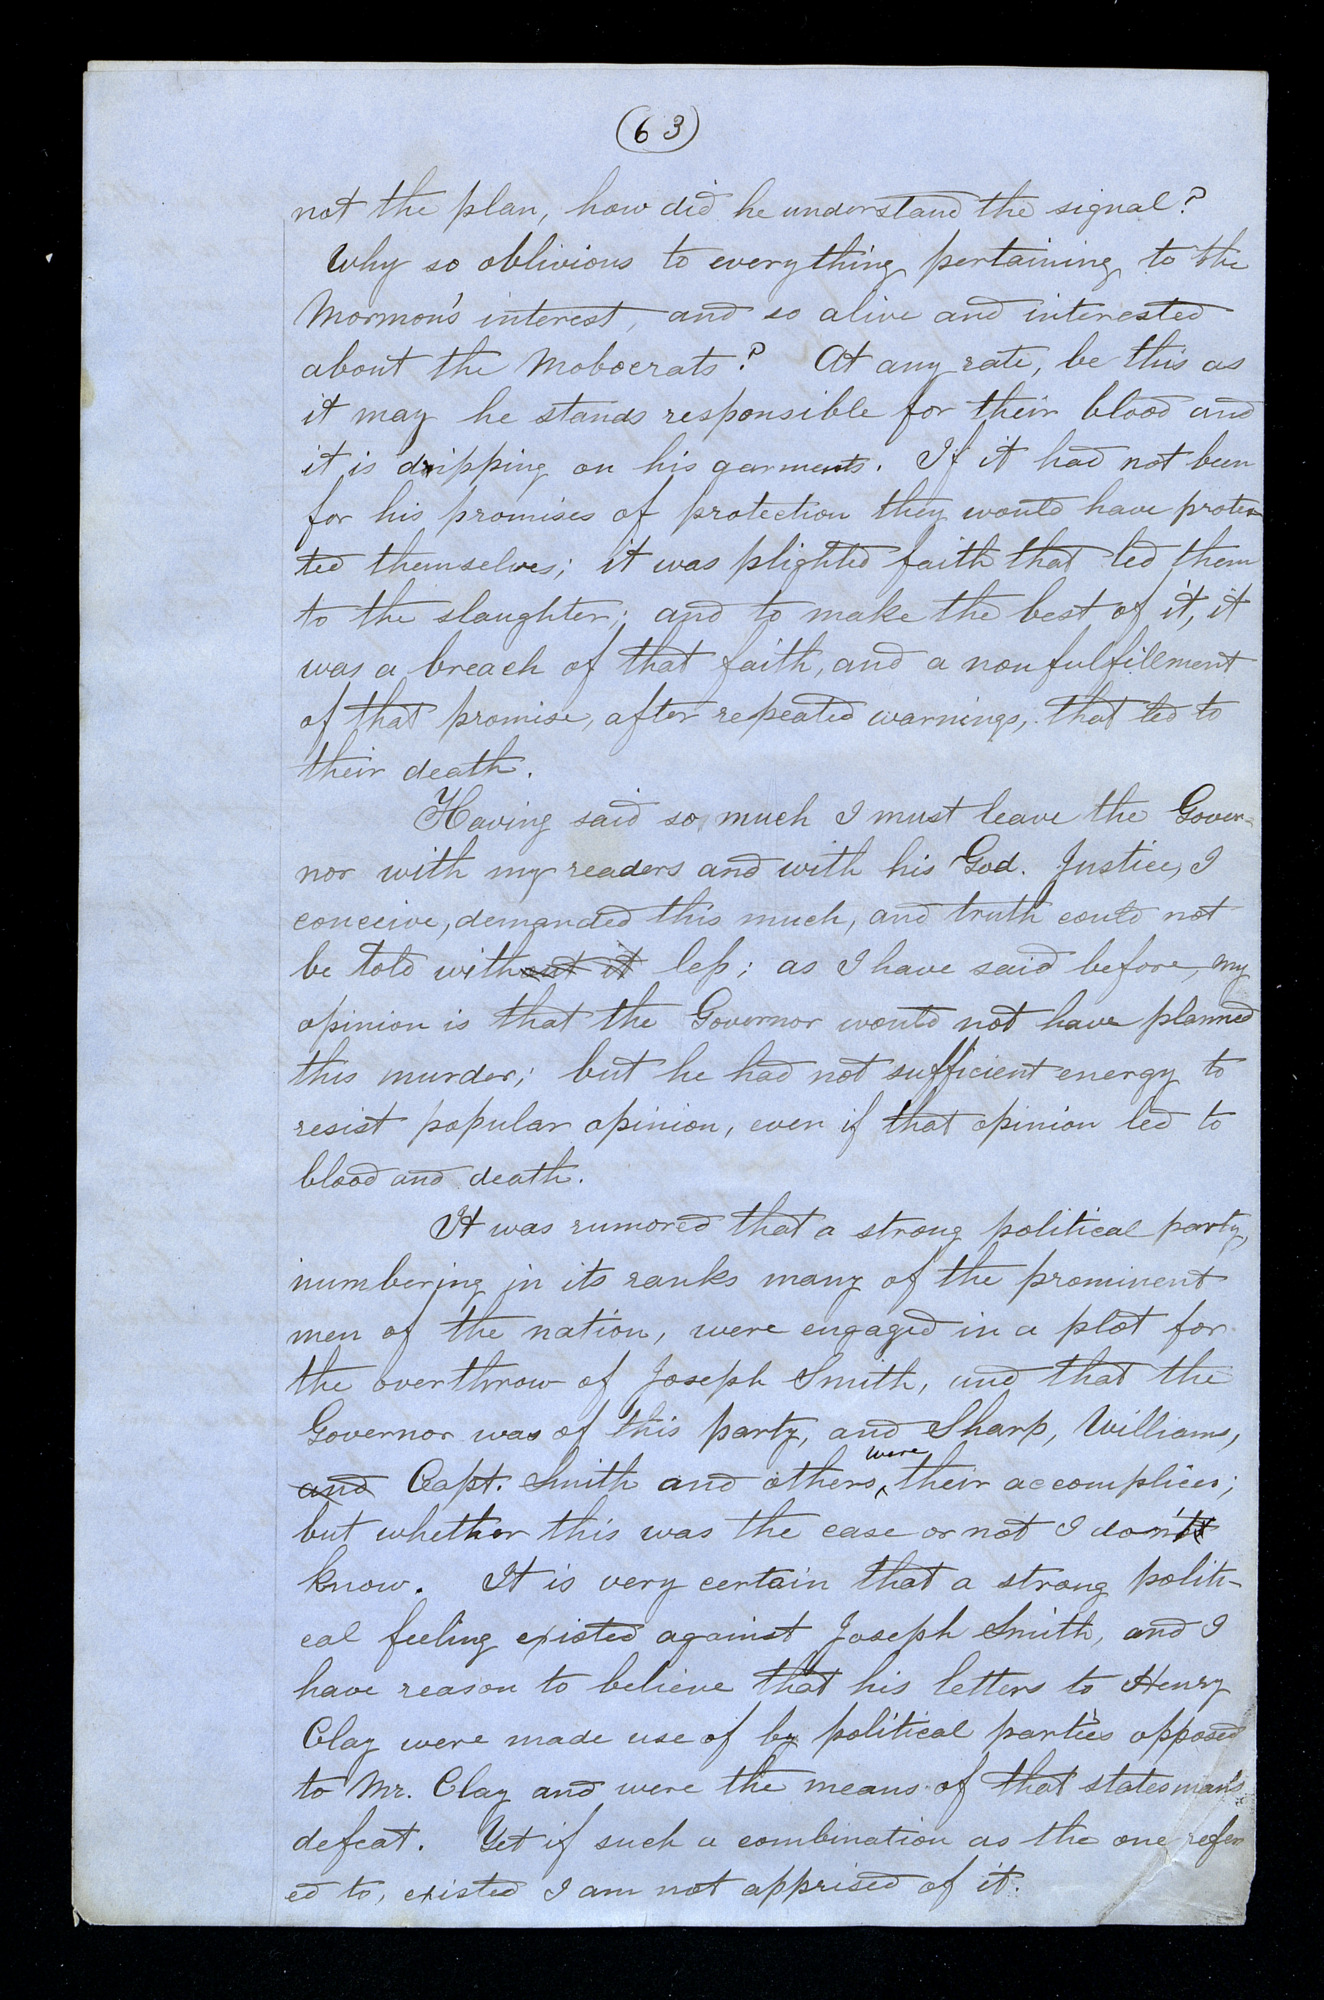 (63)
not the plan, how did he understand the signal?
Why so oblivious to everything pertaining to the
Mormon's interest, and so alive and interested
about the Mobocrats? At any rate, be this as
it may he stands responsible for their blood and
it is dripping on his garments. If it had not been
for his promises of protection they would have protec
ted themselves; it was plighted faith that led them
to the slaughter; and to make the best of it, it
was a breach of that faith, and a nonfulfillment
of that promise, after repeated warnings, that led to
their death.
Having said so much I must leave the Gover-
nor with my readers and with his God. Justice, I
conceive, demanded this much, and truth could not
be told without it less; as I have said before, my
opinion is that the Governor would not have planned
this murder; but he had not sufficient energy to
resist popular opinion, even if that opinion led to
blood and death.
It was rumored that a strong political party,
numbering in its ranks many of the prominent
men of the nation, were engaged in a plot for
the overthrow of Joseph Smith, and that the
Governor was of this party, and Sharp, Williams,
and Capt. Smith and others, were their accomplices;
but whether this was the case or not I don't
know. It is very certain that a strong politi-
cal feeling existed against Joseph Smith, and I
have reason to believe that his letters to Henry
Clay were made use of by political parties opposed
to Mr. Clay and were the means of that statesman's
defeat. Yet if such a combination as the one refer
ed to, existed I am not apprised of it.